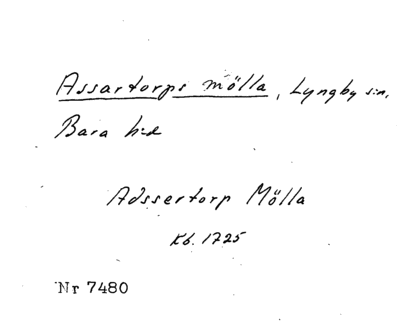 Assartorps mölla, Lyngby s:n,
Bara h:d
Adssertorp Mölla
Kb. 1725
Nr 7480